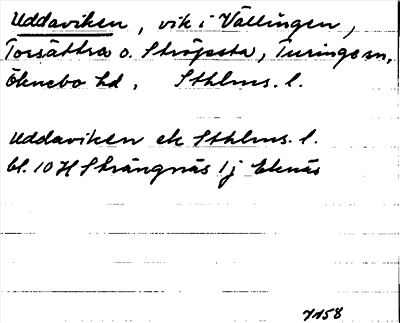 Uddaviken, vik i Vällingen,
Torsåttra o. Ströpsta, Turinge sn,
Öknebo hd, Sthlms. l.
Uddaviken ek Sthlms. l.
bl. 10 H Strängnäs 1j Eknäs
7158